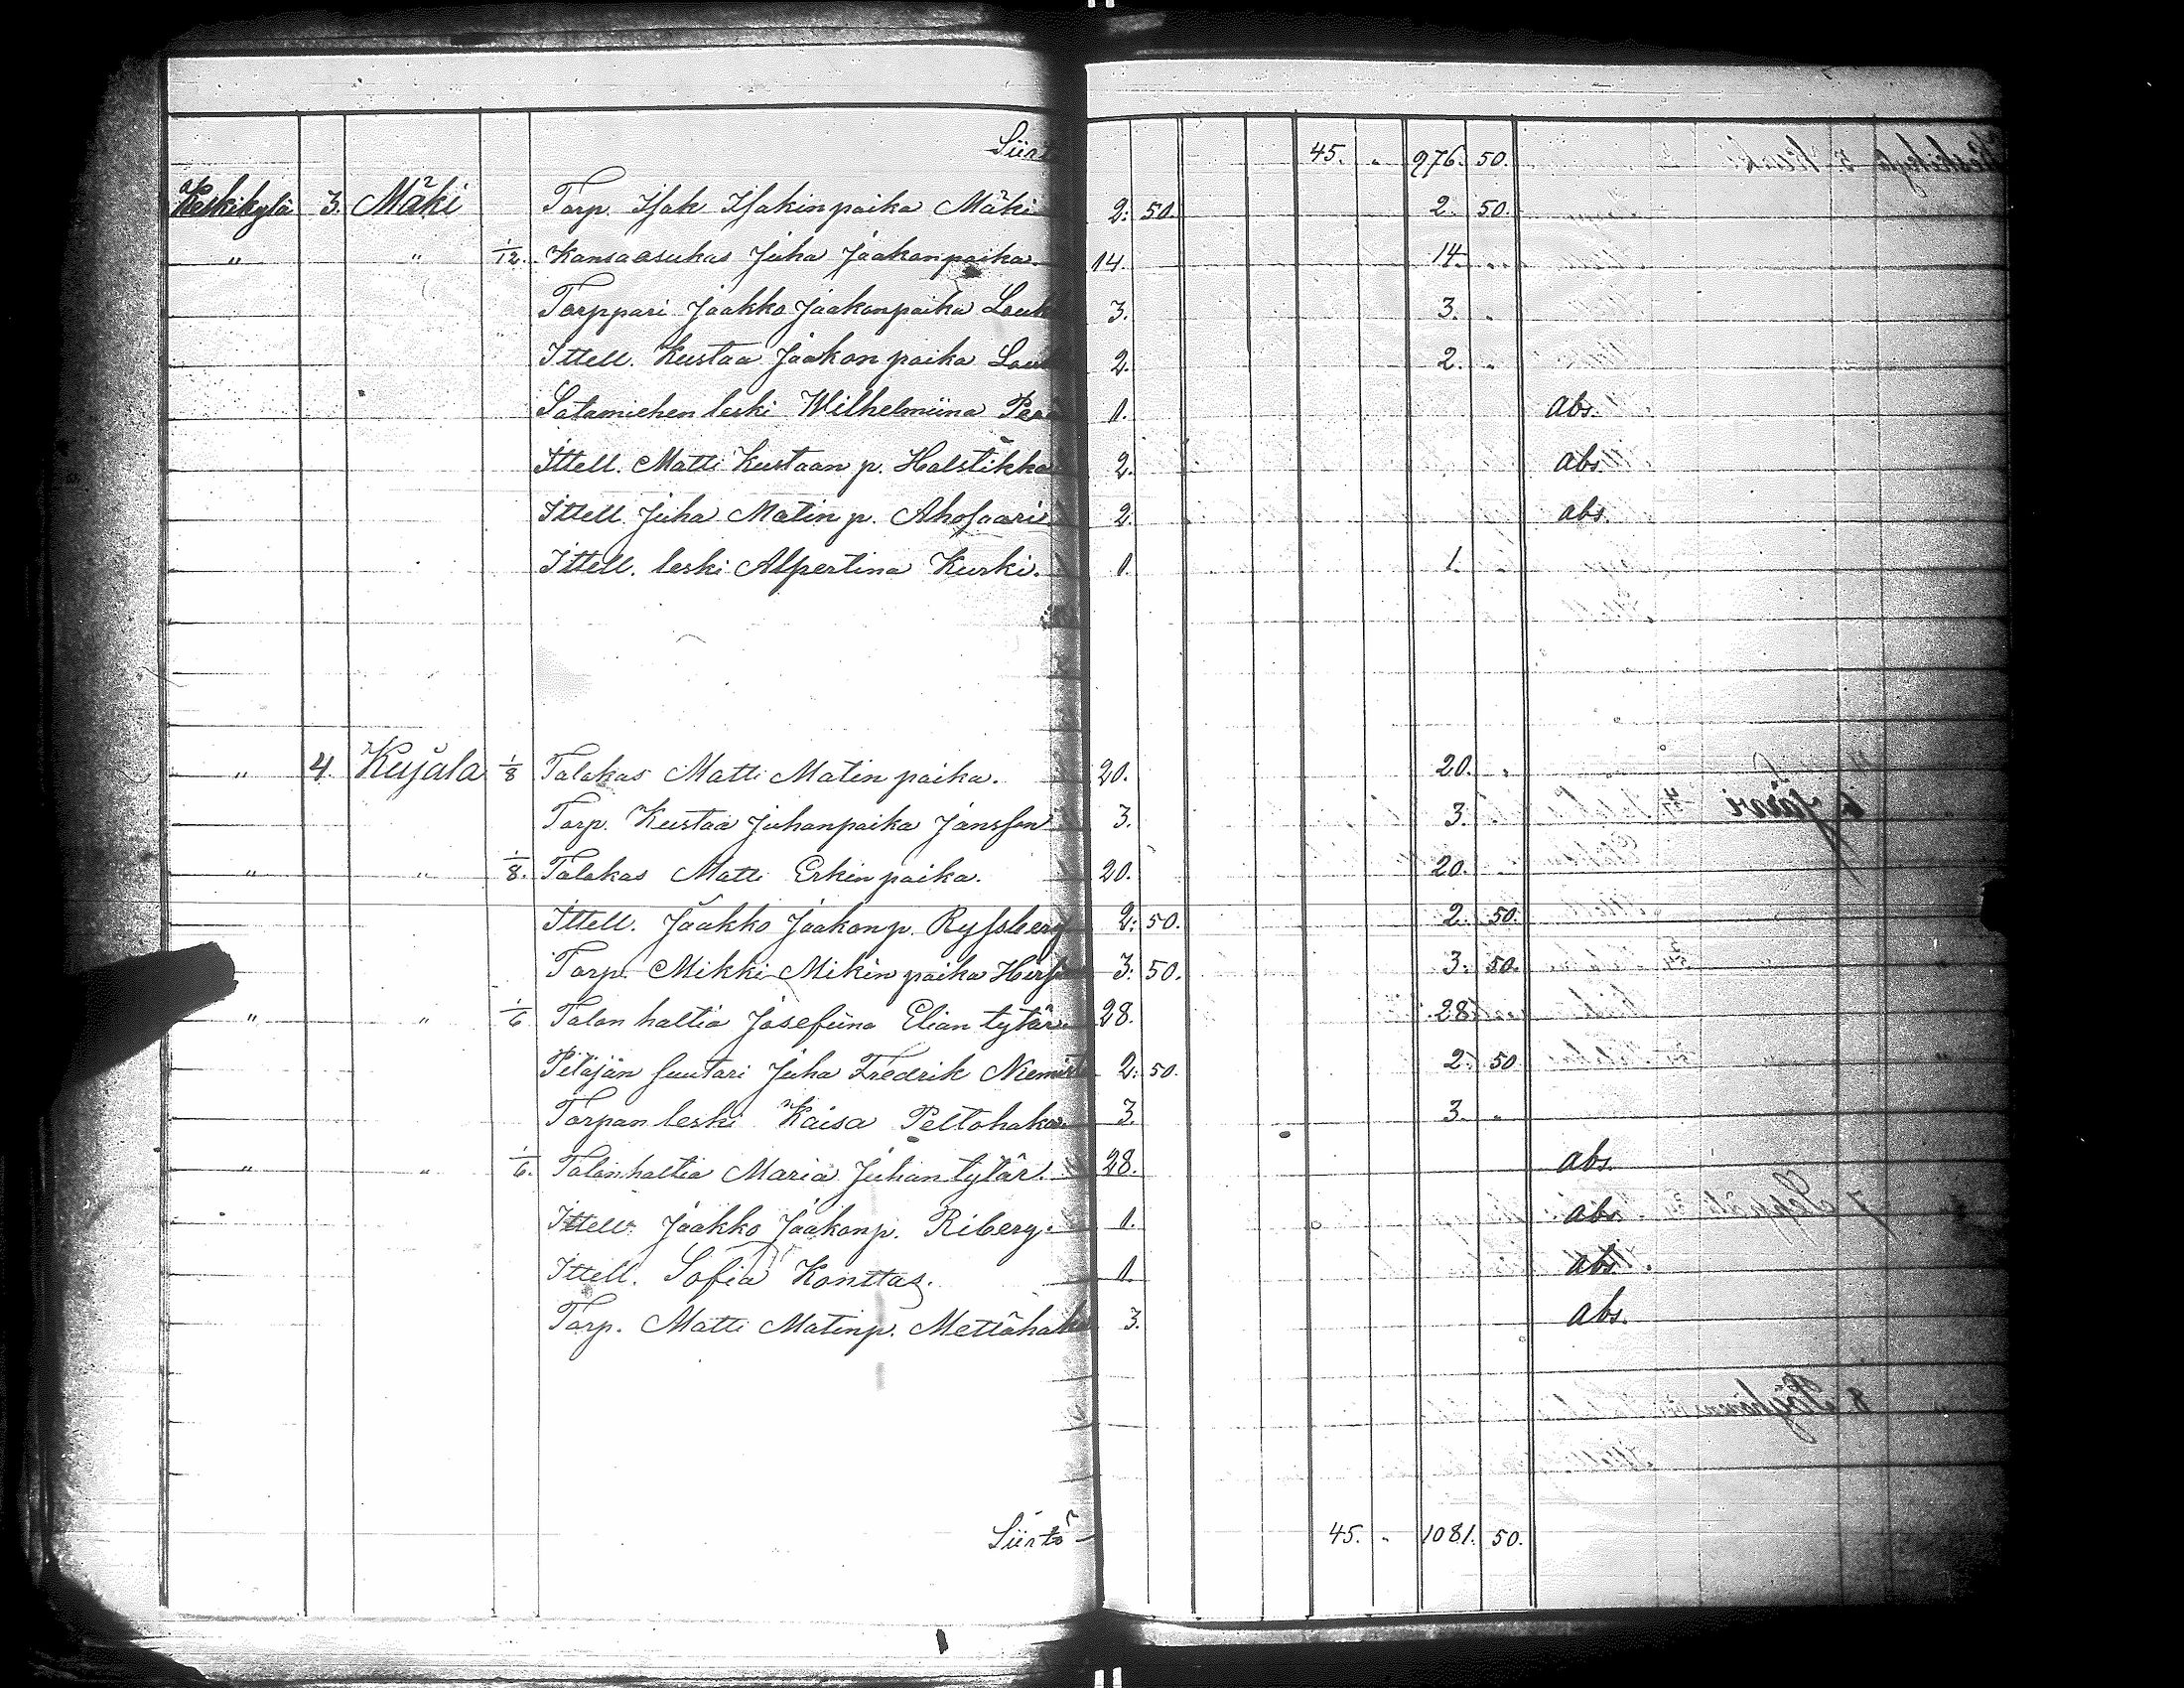 Siirt 45. " 976. 50.
Keskikylä 3. Mäki Torp. Isak Isakinpoika Mäki 2: 50 2. 50.
" " 1/12. Kansaasukas Juha Jaakonpoika. 14. 14. "
Torppari Jaakko Jaakonpoika Louk 3. 3. "
Ittell. Kustaa Jaakonpoika Louk 2. 2. "
Sotamiehen leski Wilhelmiina 1. abs.
Ittell. Matti Kustaan p. Holstikka 2. abs.
Ittell. Juha Matin p. Ahosaari 2. abs.
Ittell. leski Alpertina Kurki. 1. 1. "
" 4. Kujala 1/8 Talokas Matti Matinpoika. 20. 20. "
Torp. Kustaa Juhanpoika Jansson 3. 3. "
" " 1/8. Talokas Matti Erkinpoika. 20. 20. "
Ittell. Jaakko Jaakonp. Ryssberg 2: 50. 2. 50.
Torp. Mikki Mikinpoika 3: 50. 3. 50.
" " 1/6 Talon haltia Josefiina Eliantytär. 28. 28. "
Pitäjän suutari Juha Fredrik Niemist 2: 50. 2. 50.
Torpan leski Kaisa Peltohaka. 3. 3. "
" " 1/6. Talonhaltia Maria Juhantytär. 28. abs.
Ittell. Jaakko Jaakonp. Riberg. 1. abs.
Ittell. Sofia Konttas. 1. abs.
Torp. Matti Matinp. Mettähaka 3. abs.
Siirto 45. " 1081. 50.